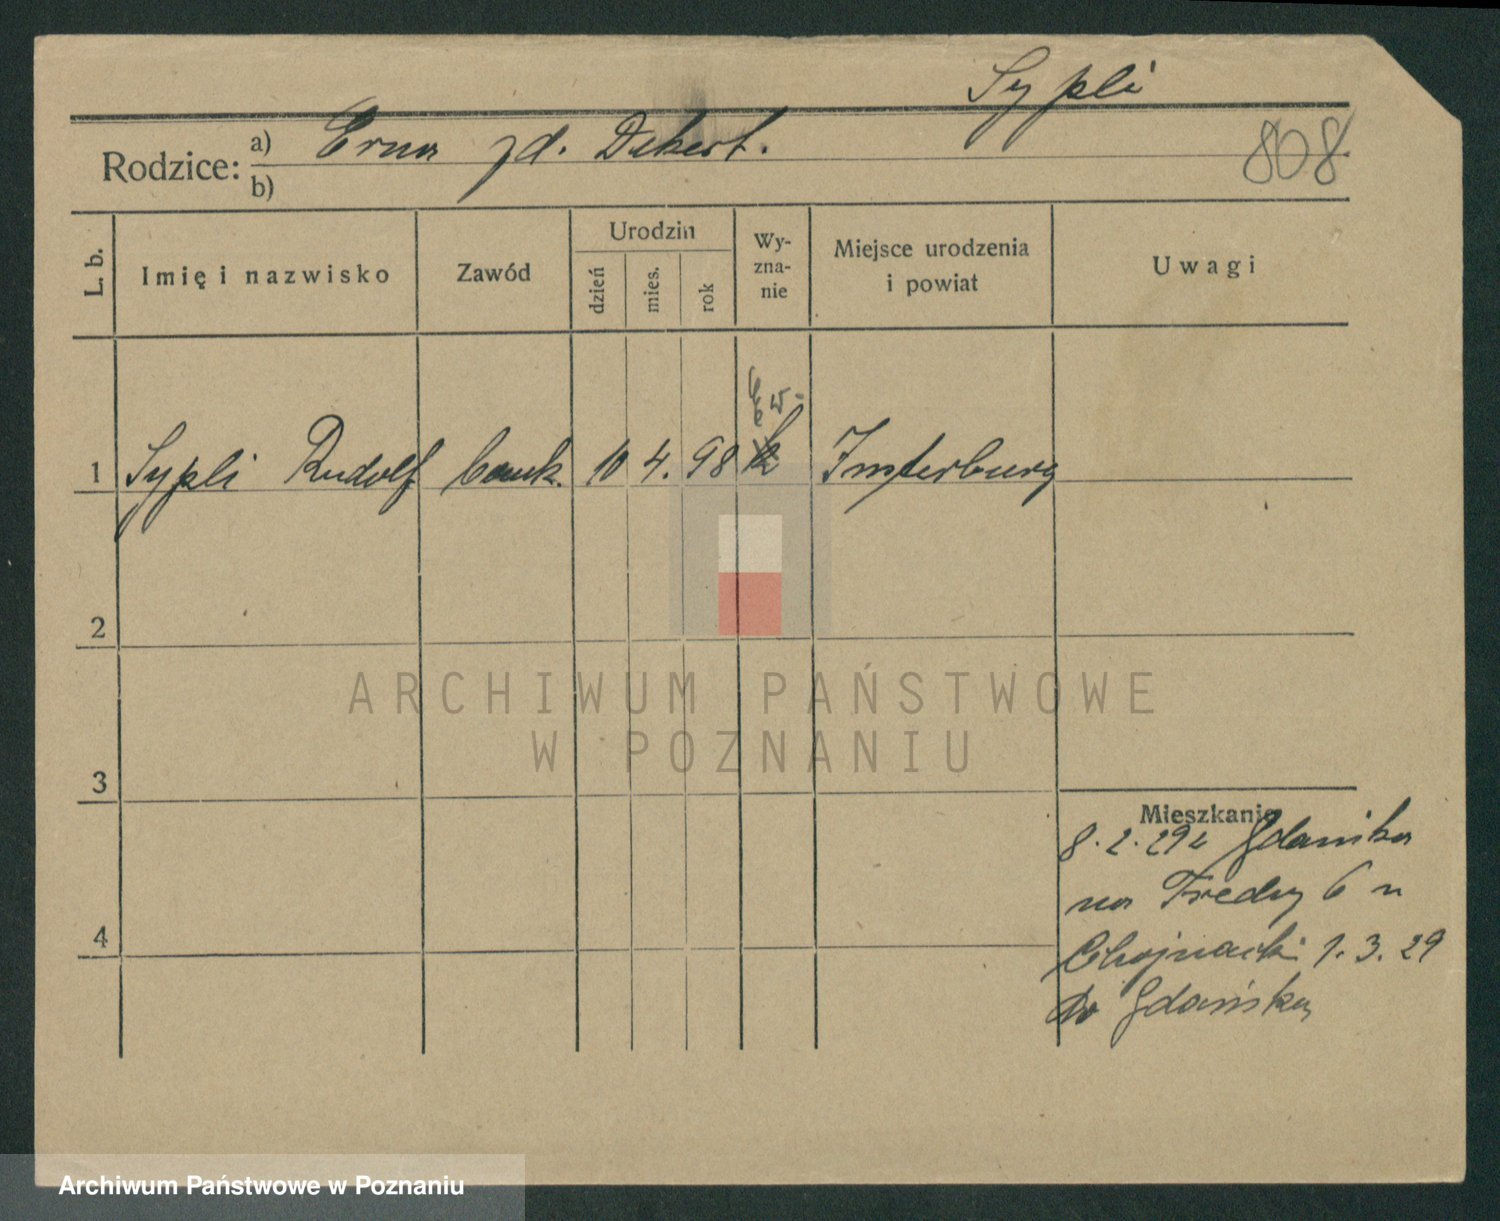 Sypli
Rodzice: a) Erna zd. Dekert.
808
b)
L. b. Imię i nazwisko Zawód Urodzin dzień mies. rok Wyznanie Miejsce urodzenia i powiat Uwagi
Ew.
1 Sypli Rudolf 10 4. 98 Insterburg
2
3
Mieszkanie
8.2.29 z Gdańska
na Fredry 6 u
4
Chojnacki 1.3.29
do Gdańska
ARCHIWUM PAŃSTWOWE
W POZNANIU
Archiwum Państwowe w Poznaniu